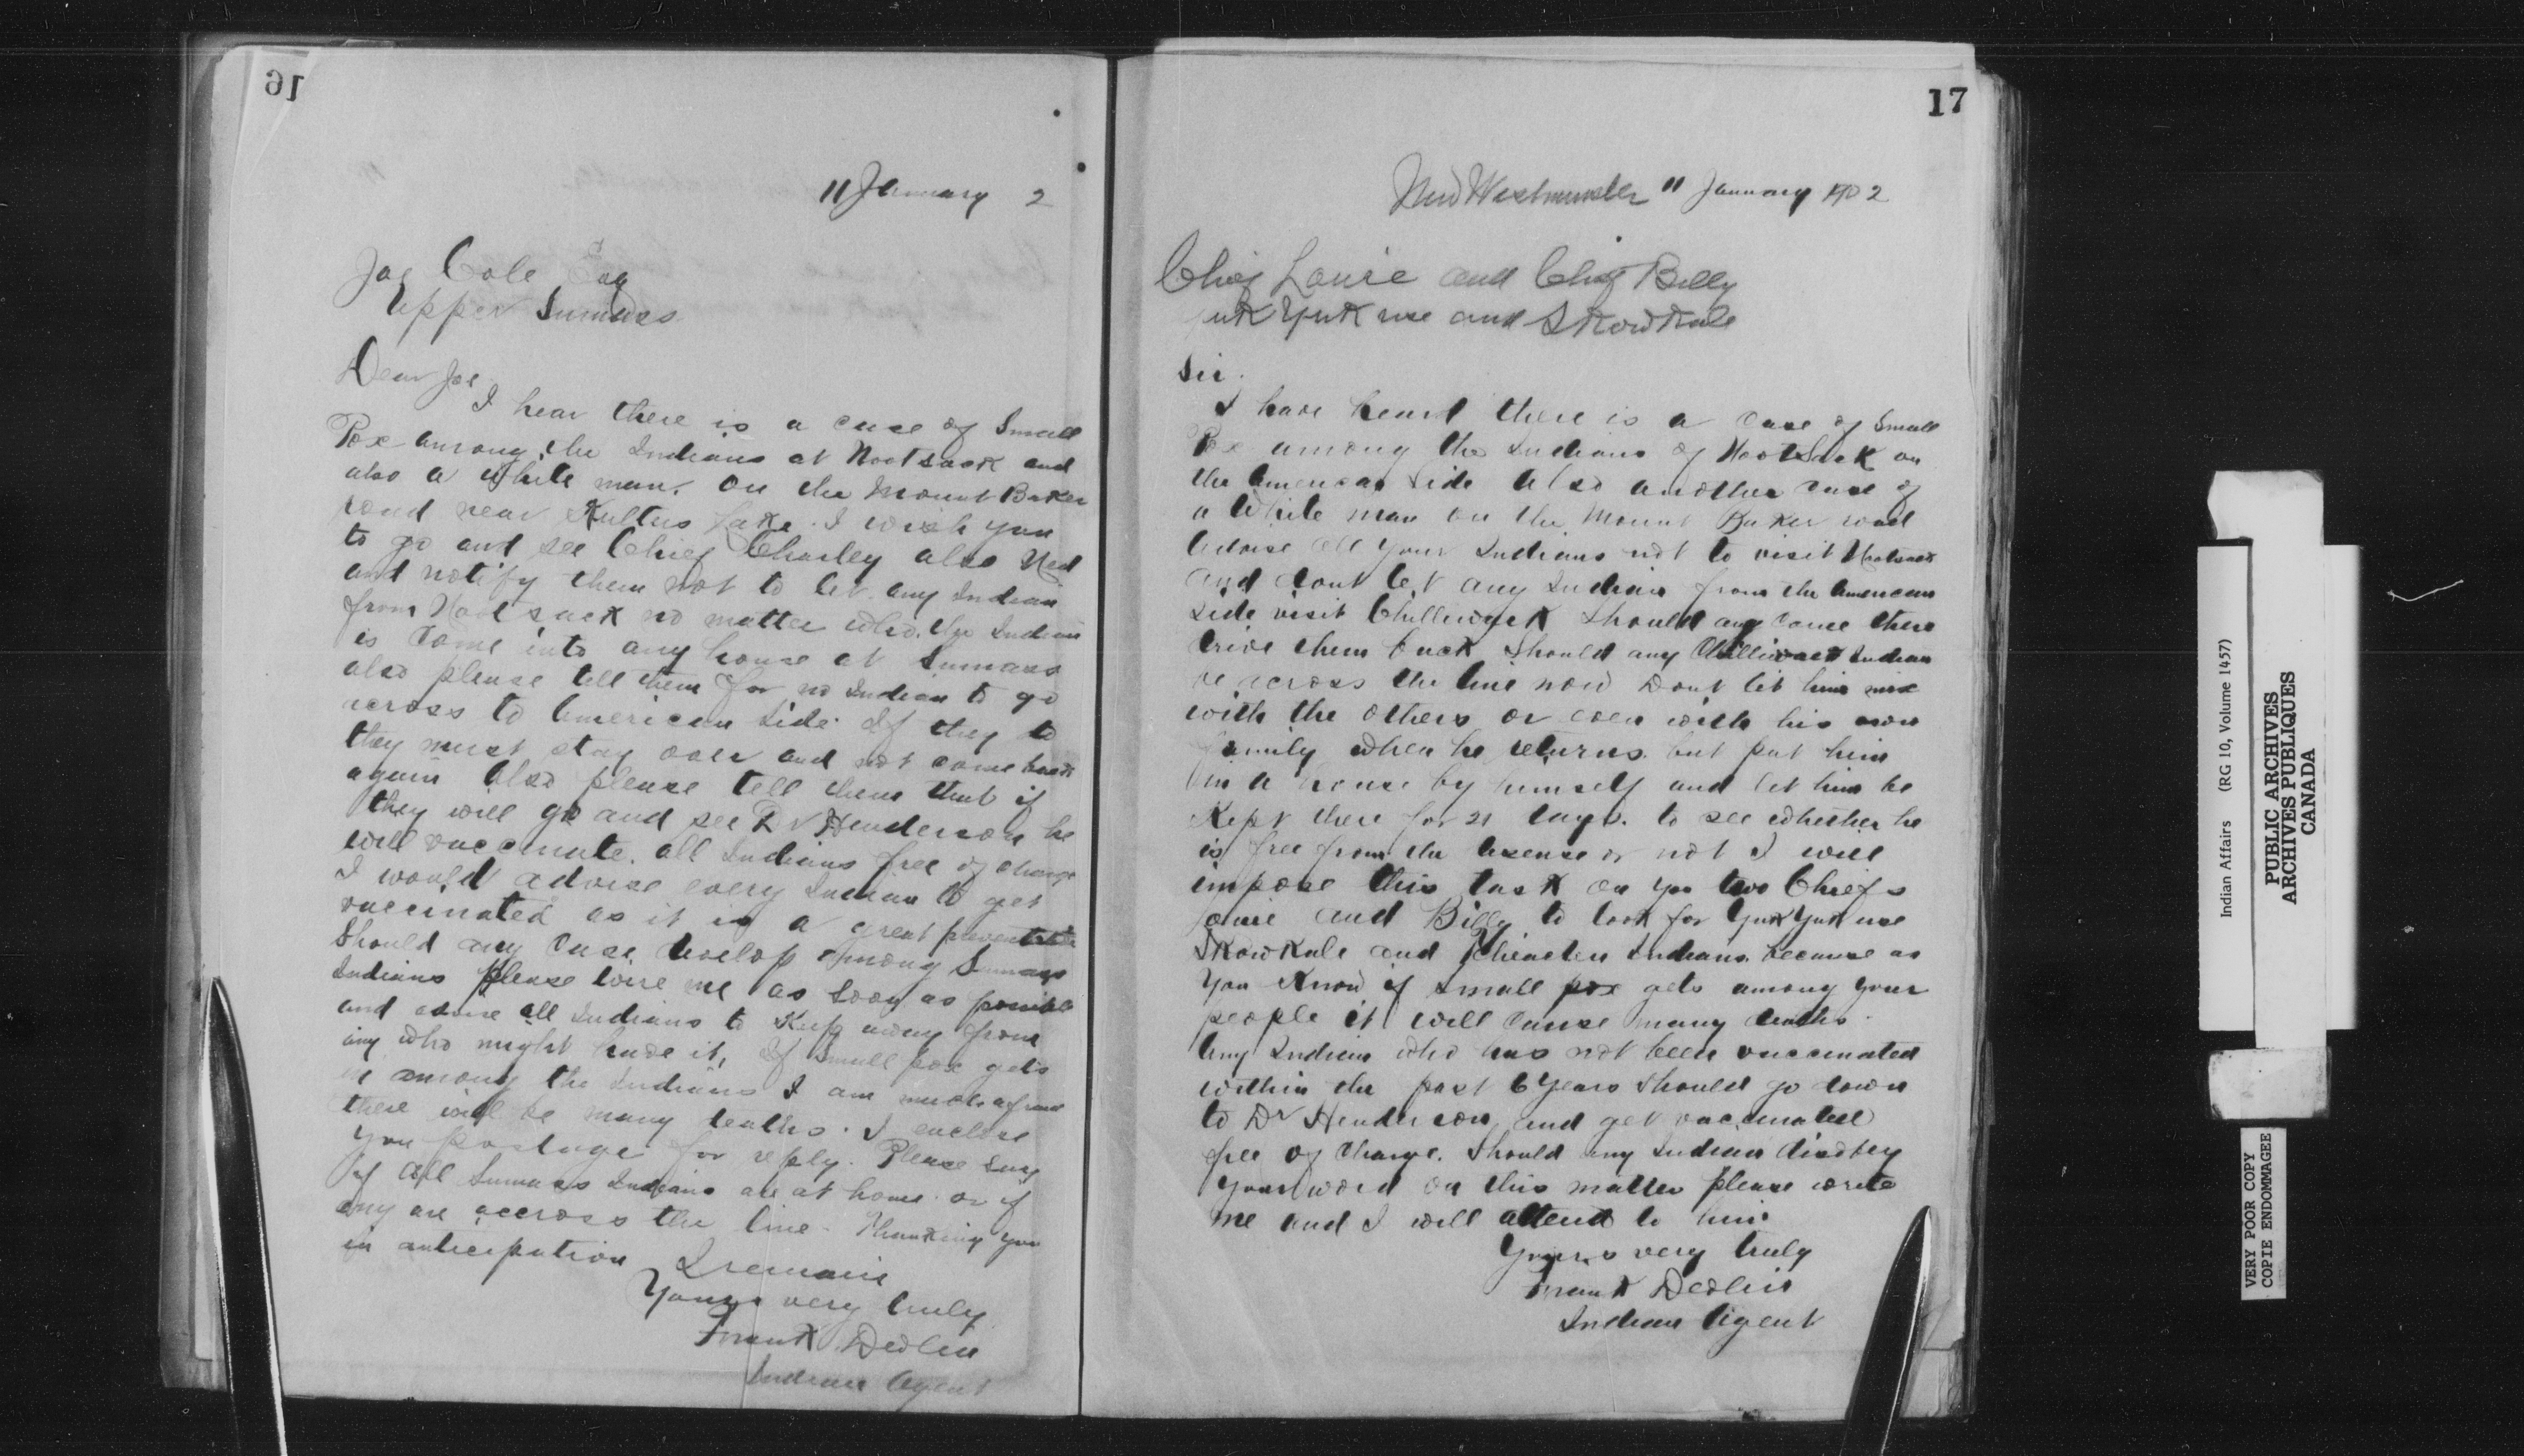 16
11 January 2
Joe Cole Esq
Upper Sumass
Dear Joe
I hear there is a case of Small
Pox among the Indians at Nootsack and
also a white man. on the Mount Baker
road near Kultus Lake. I wish you
to go and see Chief Charley also Ned
and notify them not to let any Indian
from Nootsack no matter who the Indian
is come into any house at Sumass
also please tell them for no Indian to go
across to American Side. If they do
they must stay over and not come back
again also please tell them that if
they will go and see Dr Henderson he
will vaccinate. all Indians free of charge
I would advise every Indian to get
vaccinated as it is a great preventative
Should any Case develop among Sumass
Indians please wire me as soon as possible
and advise all Indians to Keep away from
any who might have it, If Small pox gets
in among the Indians I am much afraid
there will be many deaths. I enclose
you postage for reply. Please say
if all Sumass Indians are at home or if
any are accross the line. Thanking you
in anticipation I remain
Yours very truly
Frank Devlin
Indian Agent
17
New Westminster 11 January 2
Chief Louie and Chief Billy
Yuk Yuk use and Skowkale
Sir.
I have heard there is a Case of Small
Pox among the Indians of Nootsack on
the American Side also another case of
a White man on the Mount Baker road
Advise all your Indians not to visit Nootsack
and dont let any Indian from the American
side visit Chilliwack Should any come there
drive them back Should any Chilliwack Indian
be across the line now Dont let him mix
with the others or even with his own
family when he returns. but put him
in a house by himself and let him be
Kept there for 21 days. to see whether he
is free from the disease or not I will
impose this task on you two Chiefs
Louie and Billy to look for Yuk Yuk use
Skowkale and Indians. because as
You Know if small pox gets among your
people it will cause many deaths
Any Indian who has not been vaccinated
within the past 6 Years should go down
to Dr Henderson and get vaccinated
free of charge. Should any Indian disobey
your word on this matter please write
me and I will attend to him
Yours very truly
Frank Devlin
Indian Agent
Indian Affairs (RG 10, Volume 1457)
PUBLIC ARCHIVES
ARCHIVES PUBLIQUES
CANADA
VERY POOR COPY
COPIE ENDOMMAGEE